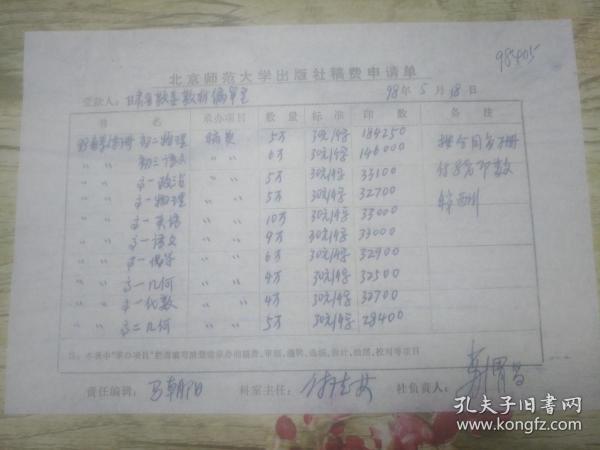 98405
北京师范大学出版社稿费申请单
受款人：甘肃省教委教材编审室 98年5月18日
书名 承办项目 数量 标准 印数 备注
初二物理 稿费 5万 30元/千字 184250
〃 〃 初三语文 〃 〃 6万 30元/千字 146000
〃 〃 高一政治 〃 〃 5万 30元/千字 33100
〃 〃 高一物理 〃 〃 5万 30元/千字 32700
〃 〃 高一英语 〃 〃 10万 30元/千字 33000
〃 〃 高一语文 〃 〃 9万 30元/千字 33000
〃 〃 高一化学 〃 〃 6万 30元/千字 32900
〃 〃 高一几何 〃 〃 4万 30元/千字 32500
〃 〃 高一代数 〃 〃 4万 30元/千字 32700
〃 〃 高二几何 〃 〃 5万 30元/千字 28400
按合同
付给印数
稿酬
注：本表中"承办项目"栏请填写清楚该承办的稿费、审稿、编辑、选编、设计、绘图、校对等项目
责任编辑：马朝阳 科室主任： 社负责人：
孔夫子旧书网
www.kongfz.com